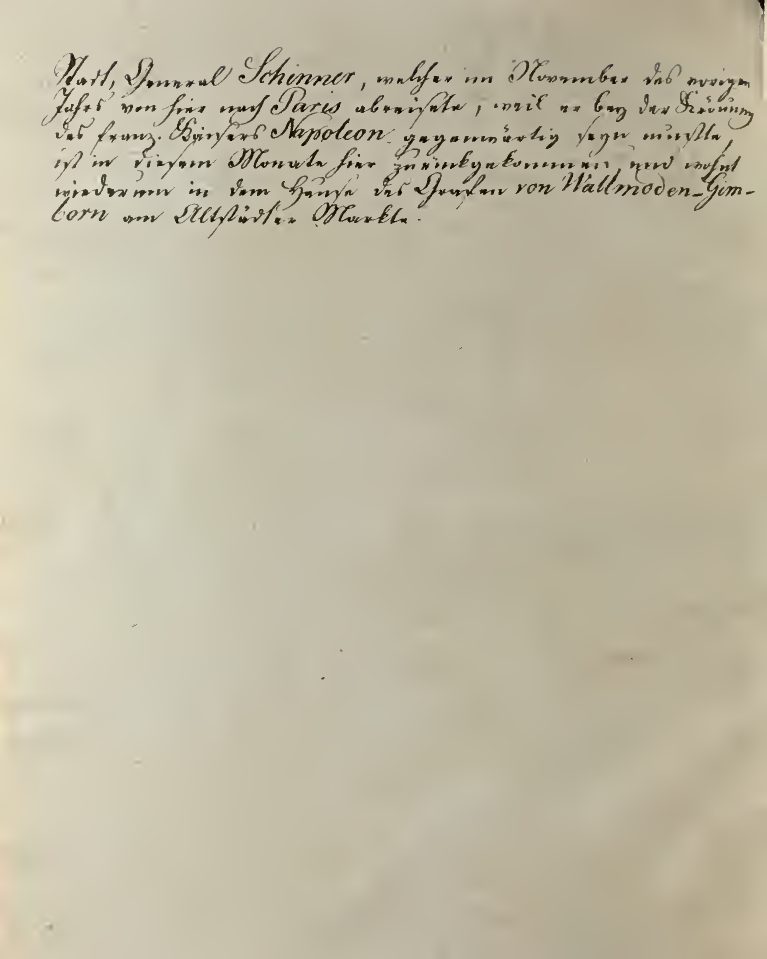 Stadt, General Schinner, welcher im November des vorigen
Jahrs von hier nach Paris abreisete, weil er bey der Krönung
des franz. Kaisers Napoleon gegenwärtig seyn mußte,
ist in diesem Monate hier zurückgekommen, und wohnt
wiederum in dem Hause des Grafen von Wallmoden-Gim-
born am Altstädter Markte.